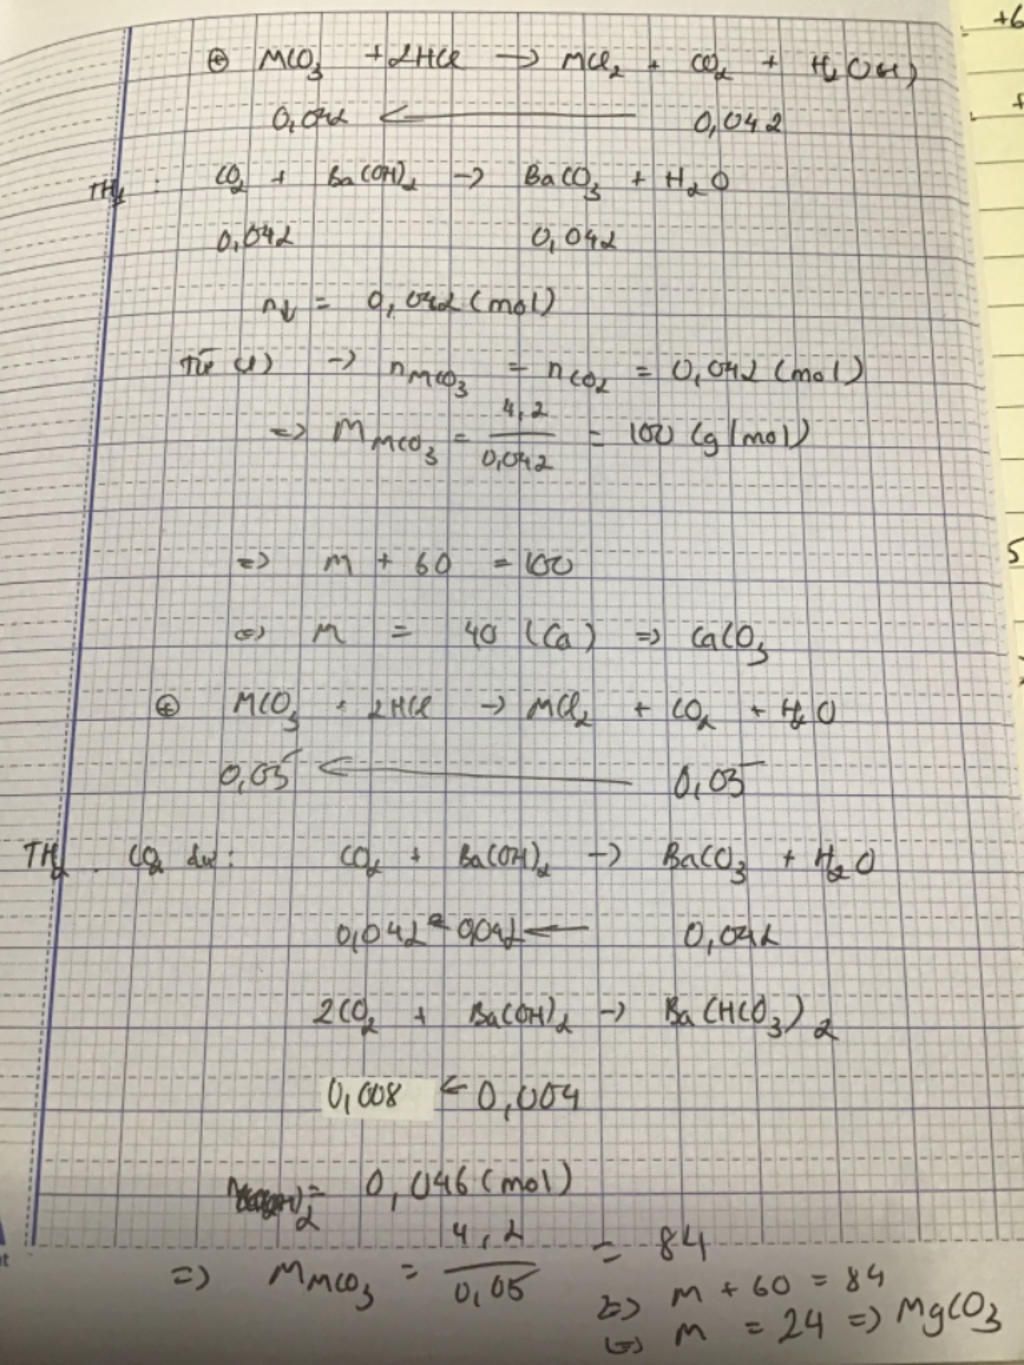 ⊕ MCO3 + 2HCl → MCl2 + CO2 + H2O (1)
0,042 ← 0,042
TH1 : CO2 + Ba(OH)2 → BaCO3 + H2O
0,042 0,042
n↓ = 0,042 (mol)
Từ (1) → nMCO3 = nCO2 = 0,042 (mol)
=> MMCO3 = 4,2 / 0,042 = 100 (g/mol)
=> M + 60 = 100
<=> M = 40 (Ca) => CaCO3
⊕ MCO3 + 2HCl → MCl2 + CO2 + H2O
0,05 ← 0,05
TH2 . CO2 dư : CO2 + Ba(OH)2 → BaCO3 + H2O
0,042 ← 0,042 ← 0,042
2CO2 + Ba(OH)2 → Ba(HCO3)2
0,008 ← 0,004
= 0,046 (mol)
=> MMCO3 = 4,2 / 0,05 = 84
<=> M + 60 = 84
<=> M = 24 => MgCO3
+6
5